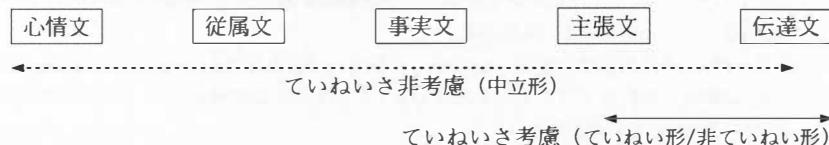 心情文 従属文 事実文 主張文 伝達文
ていねいさ非考慮（中立形）
ていねいさ考慮（ていねい形/非ていねい形）